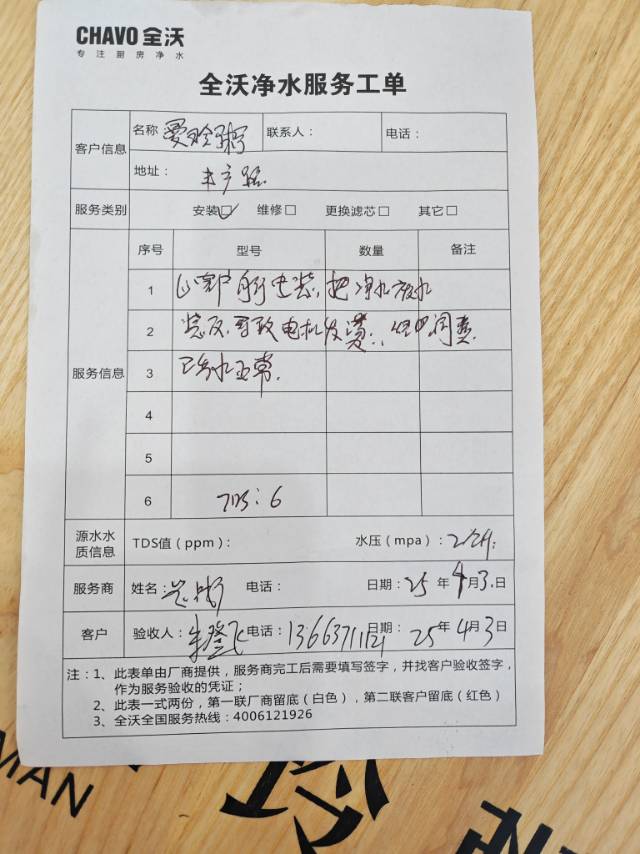 CHAVO 全沃
专注厨房净水
全沃净水服务工单
客户信息
名称
联系人：
电话：
地址： 丰产路
服务类别
安装□ 维修□ 更换滤芯□ 其它□
服务信息
序号 型号 数量 备注
1 客户 安装，把净水
2 装反，导致电机发烫
3 已出水正常.
4
5
6 TDS：6
源水水质信息
TDS值（ppm）：
水压（mpa）：
服务商
姓名： 电话： 日期：25 年 4 月 3 日
客户
验收人：朱登飞 电话：13663711121 日期：25 年 4 月 3 日
注：1、此表单由厂商提供，服务商完工后需要填写签字，并找客户验收签字，
作为服务验收的凭证；
2、此表一式两份，第一联厂商留底（白色），第二联客户留底（红色）
3、全沃全国服务热线：4006121926
MAN